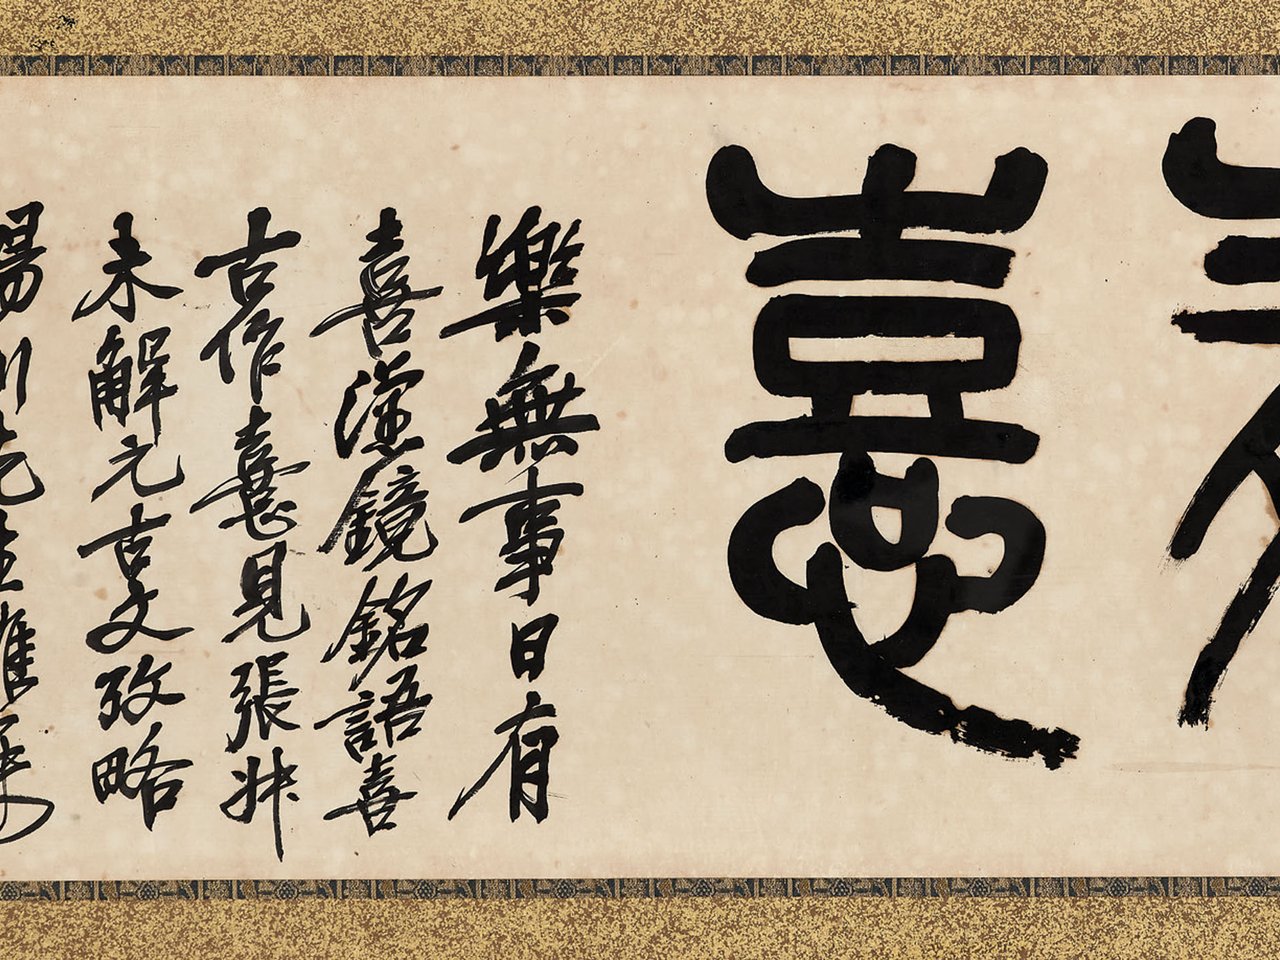 憙
樂無事日有
喜漢鏡銘語喜
古作憙見張叔
未解元古文攷略